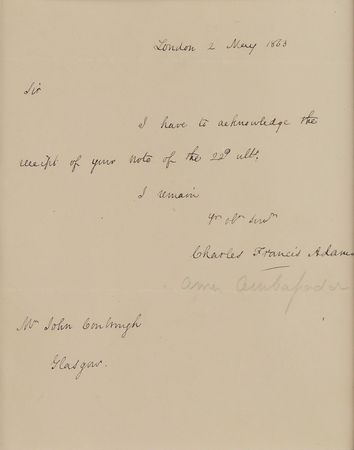 London 2 May 1863
Sir
I have to acknowledge the
receipt of your note of the 22d ulto.
I remain
Yr obt Servt
Charles Francis Adams
Amer Ambassador
Mr John
Glasgow.